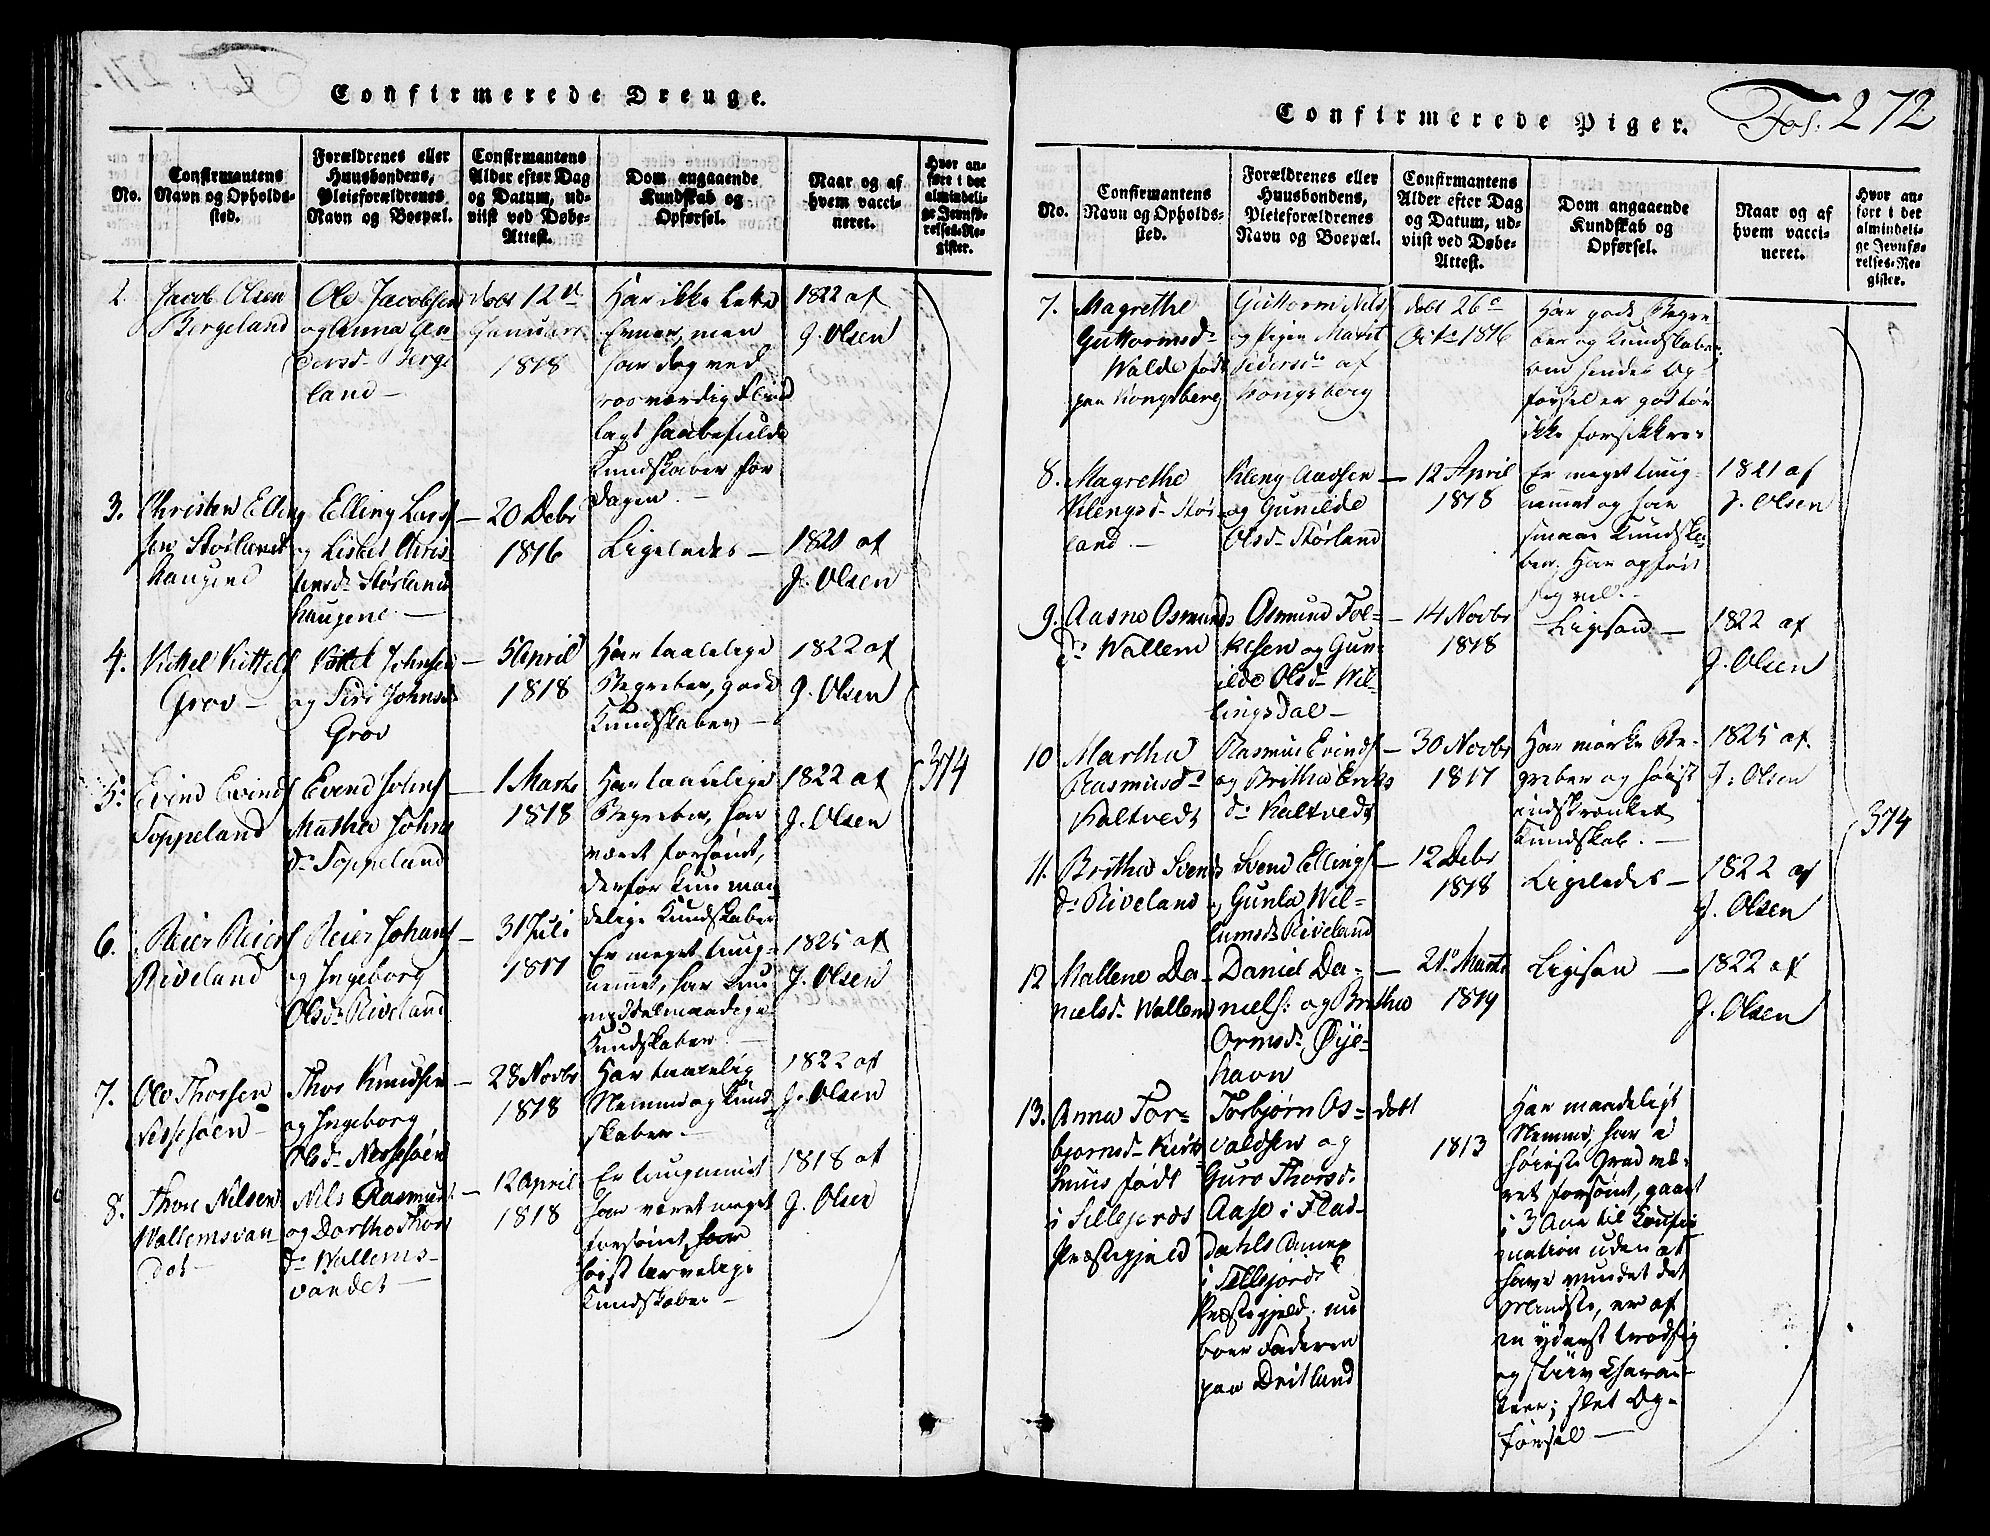 Confirmerede Drenge.
No.
Confirmantens
Navn og Opholds-
sted.
Forældrenes eller
Huusbondens,
Pleieforældrenes
Navn og Boepæl.
Confirmantens
Alder efter Dag
og Datum, ud-
viist ved Døbe-
Attest.
Dom angaaende
Kundskab og
Opførsel.
Naar og af
hvem vacci-
neret.
Hvor an-
ført i det
almindeli-
ge Jevnfø-
relses-Re-
gister.
2.
Jacob Olsen
Bergeland
Ole Jacobsen
og Anna An-
dersd. Berge
land —
døbt 12te
Januari
1818
Har ikke lette
Evner, men
har dog ved
rosværdig Fliid
lagt haabefulde
Kundskaber for
Dagen. —
1822 af
J. Olsen
3.
Christen Elling
sen Størland
haugene
Elling Lars —
og Lisbet Chris-
tensd. Størland
haugene —
20 Debr
1816
Ligeledes —
1821 af
J. Olsen
4.
Kittel Kittels
Grov —
Kittel Johnsen —
og Siri Johnsd.
Grov
5 April
1818
Har taalelige
Begreber, gode
Kundskaber —
1822 af
J. Olsen
5.
Evind Evinds
Toppeland
Evend Johns —
Martha Johns
d. Toppeland
1 Marts
1818
Har taalelige
Begreber, har
været forsømt,
derfor kun maa
delige Kundskaber
1822 af
J. Olsen
374
6.
Reier Reiers
Riveland
Reier Johans —
og Ingeborg
Olsd. Riveland
31 Juli
1817
Er meget tung-
nemmet, har kun
middelmaadige
Kundskaber. —
1825 af
J. Olsen
7.
Ole Thorsen
Nessesøen —
Thor Knudsen —
og Ingeborg
Olsd. Nessesøen
28 Novbr
1818
Har taalelig
Nemme og Kund-
skaber. —
1822 af
J. Olsen
8.
Thore Nilsen
Wallemsvan-
det —
Nils Rasmus —
og Dorthe Thors
d. Wallems-
vandet —
12 April
1818
Er tungnemmet
har været meget
forsømt, har
høist tarvelige
Kundskaber —
1818 af
J. Olsen
Confirmerede Piger.
Fol: 272
No.
Confirmantens
Navn og Opholds-
sted.
Forældrenes eller
Huusbondens,
Pleieforældrenes
Navn og Boepæl.
Confirmantens
Alder efter Dag
og Datum, ud-
viist ved Døbe-
Attest.
Dom angaaende
Kundskab og
Opførsel.
Naar og af
hvem vacci-
neret.
Hvor an-
ført i det
almindeli-
ge Jevnfø-
relses-Re-
gister.
7.
Magrethe
Guttormsd.
Walde født
paa Kongsberg
Guttorm Nils
og Pigen Marit
Pedersd. af
Kongsberg
døbt 26e
1816
Har gode Begre-
ber og Kundskaber,
om hendes Op
førsel er god tør
ikke forsikkres
8.
Magrethe
Klengsd. Stør-
land. —
Kleng Aadsen —
og Gunilde
Olsd. Størland
12 April
1818
Er meget tung-
nemmet og har
smaae Kundska-
ber. Har opført
sig vel. —
1821 af
J. Olsen
9.
Aasne Osmunds
d. Wallem
Osmund Tol- —
lefsen og Gun-
ilde Olsd. Wil-
lingsdal —
14 Novbr
1818
Ligesaa —
1822 af
J. Olsen
10
Martha
Rasmusd.
Kaltvedt
Rasmus Evinds —
og Britha Eriks
d. Kaltvedt
30 Novbr
1817
Har mørke Be-
greber og høist
indskrænket
Kundskab. —
1825 af
J. Olsen
374
11.
Britha Svends
d. Riveland —
Svend Ellings —
og Gunla Wil-
lumsd. Riveland
12 Debr
1818
Ligeledes —
1822 af
J. Olsen
12
Mallene Da-
nielsd. Wallem
Daniel Da- —
niels. og Britha
Ormsd. Øye-
havn
21 Marts
1819
Ligesaa —
1822 af
J. Olsen
13.
Anna Tor-
bjørnsd.
huus født
i Sillejords
Præstegjeld
Torbjørn Os-
valdsen og
Guro Thorsd.
Aase i Flad-
dahls Annex
i Sillejords
Præstegjeld. nu
boer Faderen
paa Dritland
døbt
1813
Har maadeligt
Nemme, har i
høieste Grad væ-
ret forsømt, gaaet
i 3 Aar til Confir
mation uden at
have vundet det
Mindste, er af
en yderst trodsig
og stiiv Charac-
teer; slet Op-
førsel —